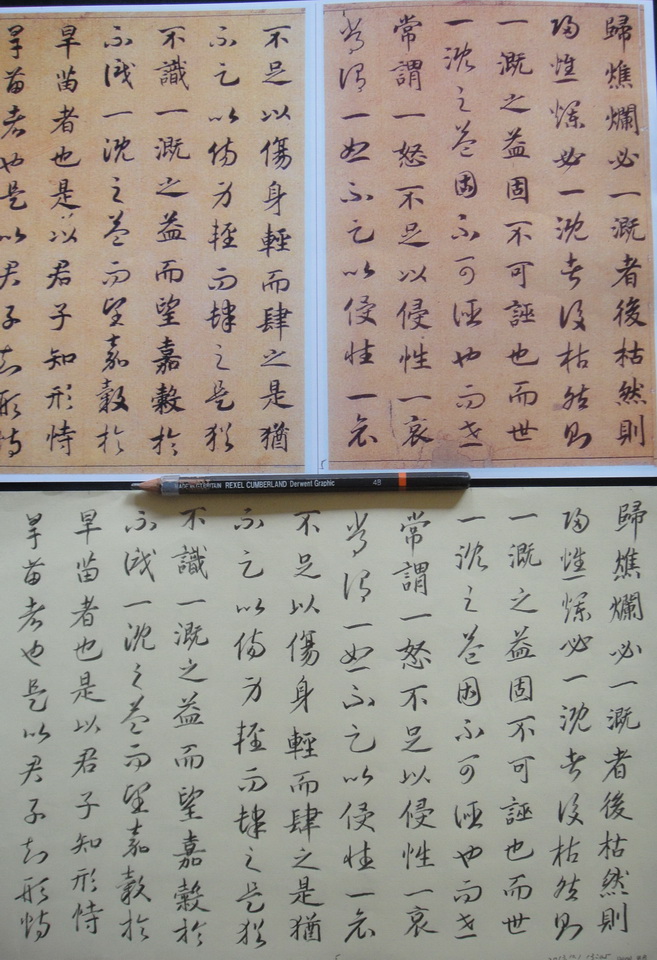 歸燋爛必一溉者後枯然則
歸燋爛必一溉者後枯然則
一溉之益固不可誣也而世
一溉之益固不可誣也而世
常謂一怒不足以侵性一哀
常謂一怒不足以侵性一哀
不足以傷身輕而肆之是猶
不足以傷身輕而肆之是猶
不識一溉之益而望嘉穀於
不識一溉之益而望嘉穀於
旱苗者也是以君子知形恃
旱苗者也是以君子知形恃
REXEL CUMBERLAND Derwent Graphic 4B
歸燋爛必一溉者後枯然則
歸燋爛必一溉者後枯然則
一溉之益固不可誣也而世
一溉之益固不可誣也而世
常謂一怒不足以侵性一哀
常謂一怒不足以侵性一哀
不足以傷身輕而肆之是猶
不足以傷身輕而肆之是猶
不識一溉之益而望嘉穀於
不識一溉之益而望嘉穀於
旱苗者也是以君子知形恃
旱苗者也是以君子知形恃